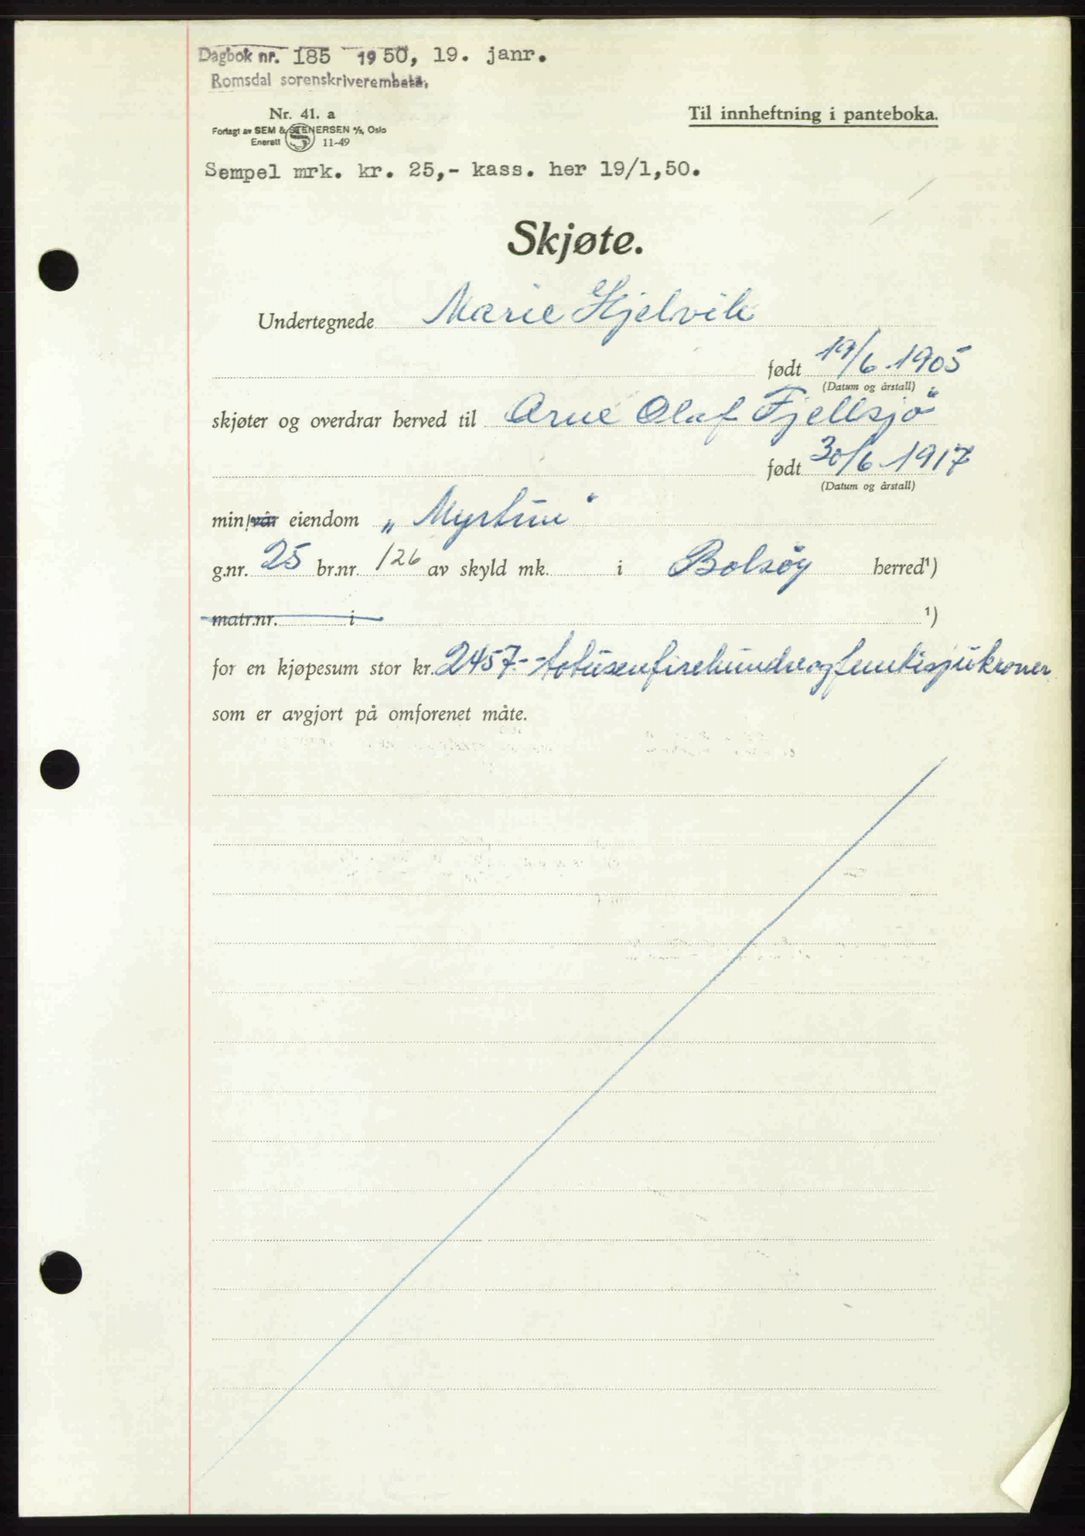 Dagbok nr. 185 1950, 19. janr.
Romsdal sorenskriverembete.
Nr. 41. a
Forlagt av SEM & STENERSEN A/S, Oslo
Enerett 11-49
Til innheftning i panteboka.
Sempel mrk. kr. 25,- kass. her 19/1,50.
Skjøte.
Undertegnede Marie Hjelvik
født 19/6.1905
(Datum og årstall)
skjøter og overdrar herved til Arne Olaf Fjellsjö
født 30/6.1917
(Datum og årstall)
min/vår eiendom „Myrtun"
g.nr. 25 br.nr. 126 av skyld mk. i Bolsøy herred¹)
matr.nr. i ¹)
for en kjøpesum stor kr. 2457.- totusenfirehundreogfemtisjukroner
som er avgjort på omforenet måte.